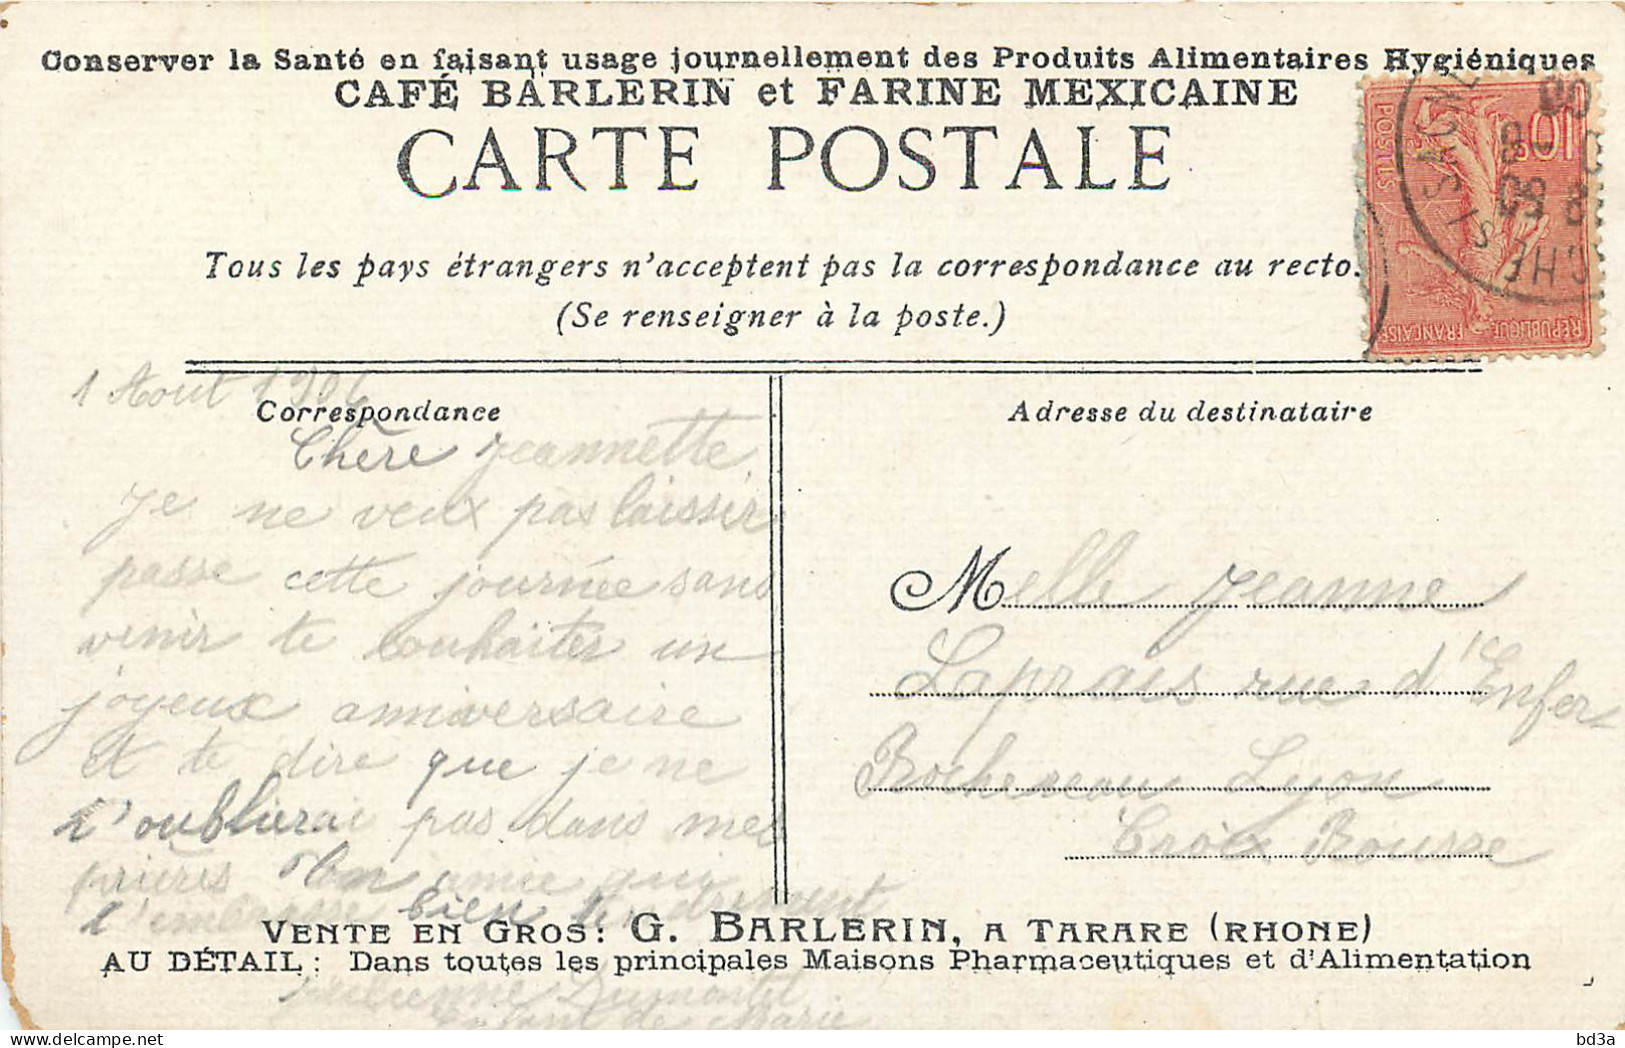 Conserver la Santé en faisant usage journellement des Produits Alimentaires Hygiéniques
CAFÉ BARLERIN et FARINE MEXICAINE
CARTE POSTALE
10c
POSTES
REPUBLIQUE FRANÇAISE
Tous les pays étrangers n'acceptent pas la correspondance au recto.
(Se renseigner à la poste.)
1 Aout 1906
Correspondance
Chère Jeannette
Je ne veux pas laissir
passe cette journée sans
venir te souhaiter un
joyeux anniversaire
et te dire que je ne
t'oublierai pas dans mes
prières Mon amie qui
t'embrasse bien tendrement
Dumontel
Enfant de Marie
Adresse du destinataire
Melle Jeanne
Laprais rue d'Enfer
Rochereau Lyon
Croix Rousse
VENTE EN GROS: G. BARLERIN, A TARARE (RHONE)
AU DÉTAIL : Dans toutes les principales Maisons Pharmaceutiques et d'Alimentation
bd3a